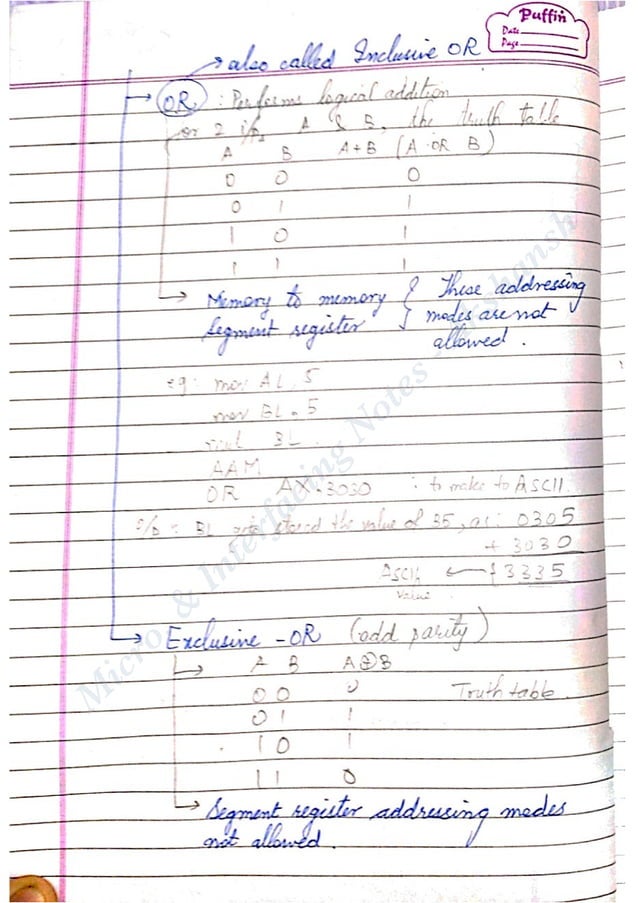 Puffin
Date
Page
→ also called Inclusive OR
→ OR : Performs logical addition
for 2 i/ps A & B, the truth table
A B A+B (A OR B)
0 0 0
0 1 1
1 0 1
1 1 1
→ Memory to memory { These addressing
Segment register } modes are not
allowed.
eg: mov AL, 5
mov BL, 5
mul BL
AAM
OR AX, 3030 : to make to ASCII.
o/p : BL gets stored the value of 35, as: 0305
+ 3030
ASCII ← { 3335
value
→ Exclusive - OR (odd parity)
→ A B A⊕B
0 0 0 Truth table.
0 1 1
1 0 1
1 1 0
→ Segment register addressing modes
not allowed.
Micro. & Interfacing Notes